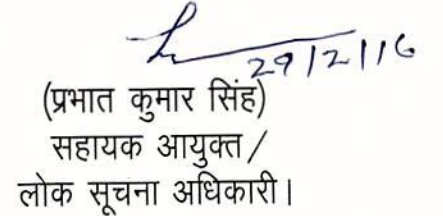 29/2/16
(प्रभात कुमार सिंह)
सहायक आयुक्त/
लोक सूचना अधिकारी।